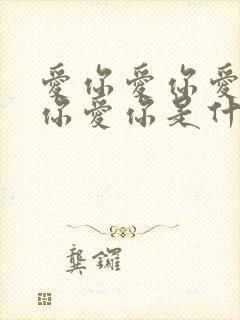 愛你愛你愛
你愛你是什
龔鑼